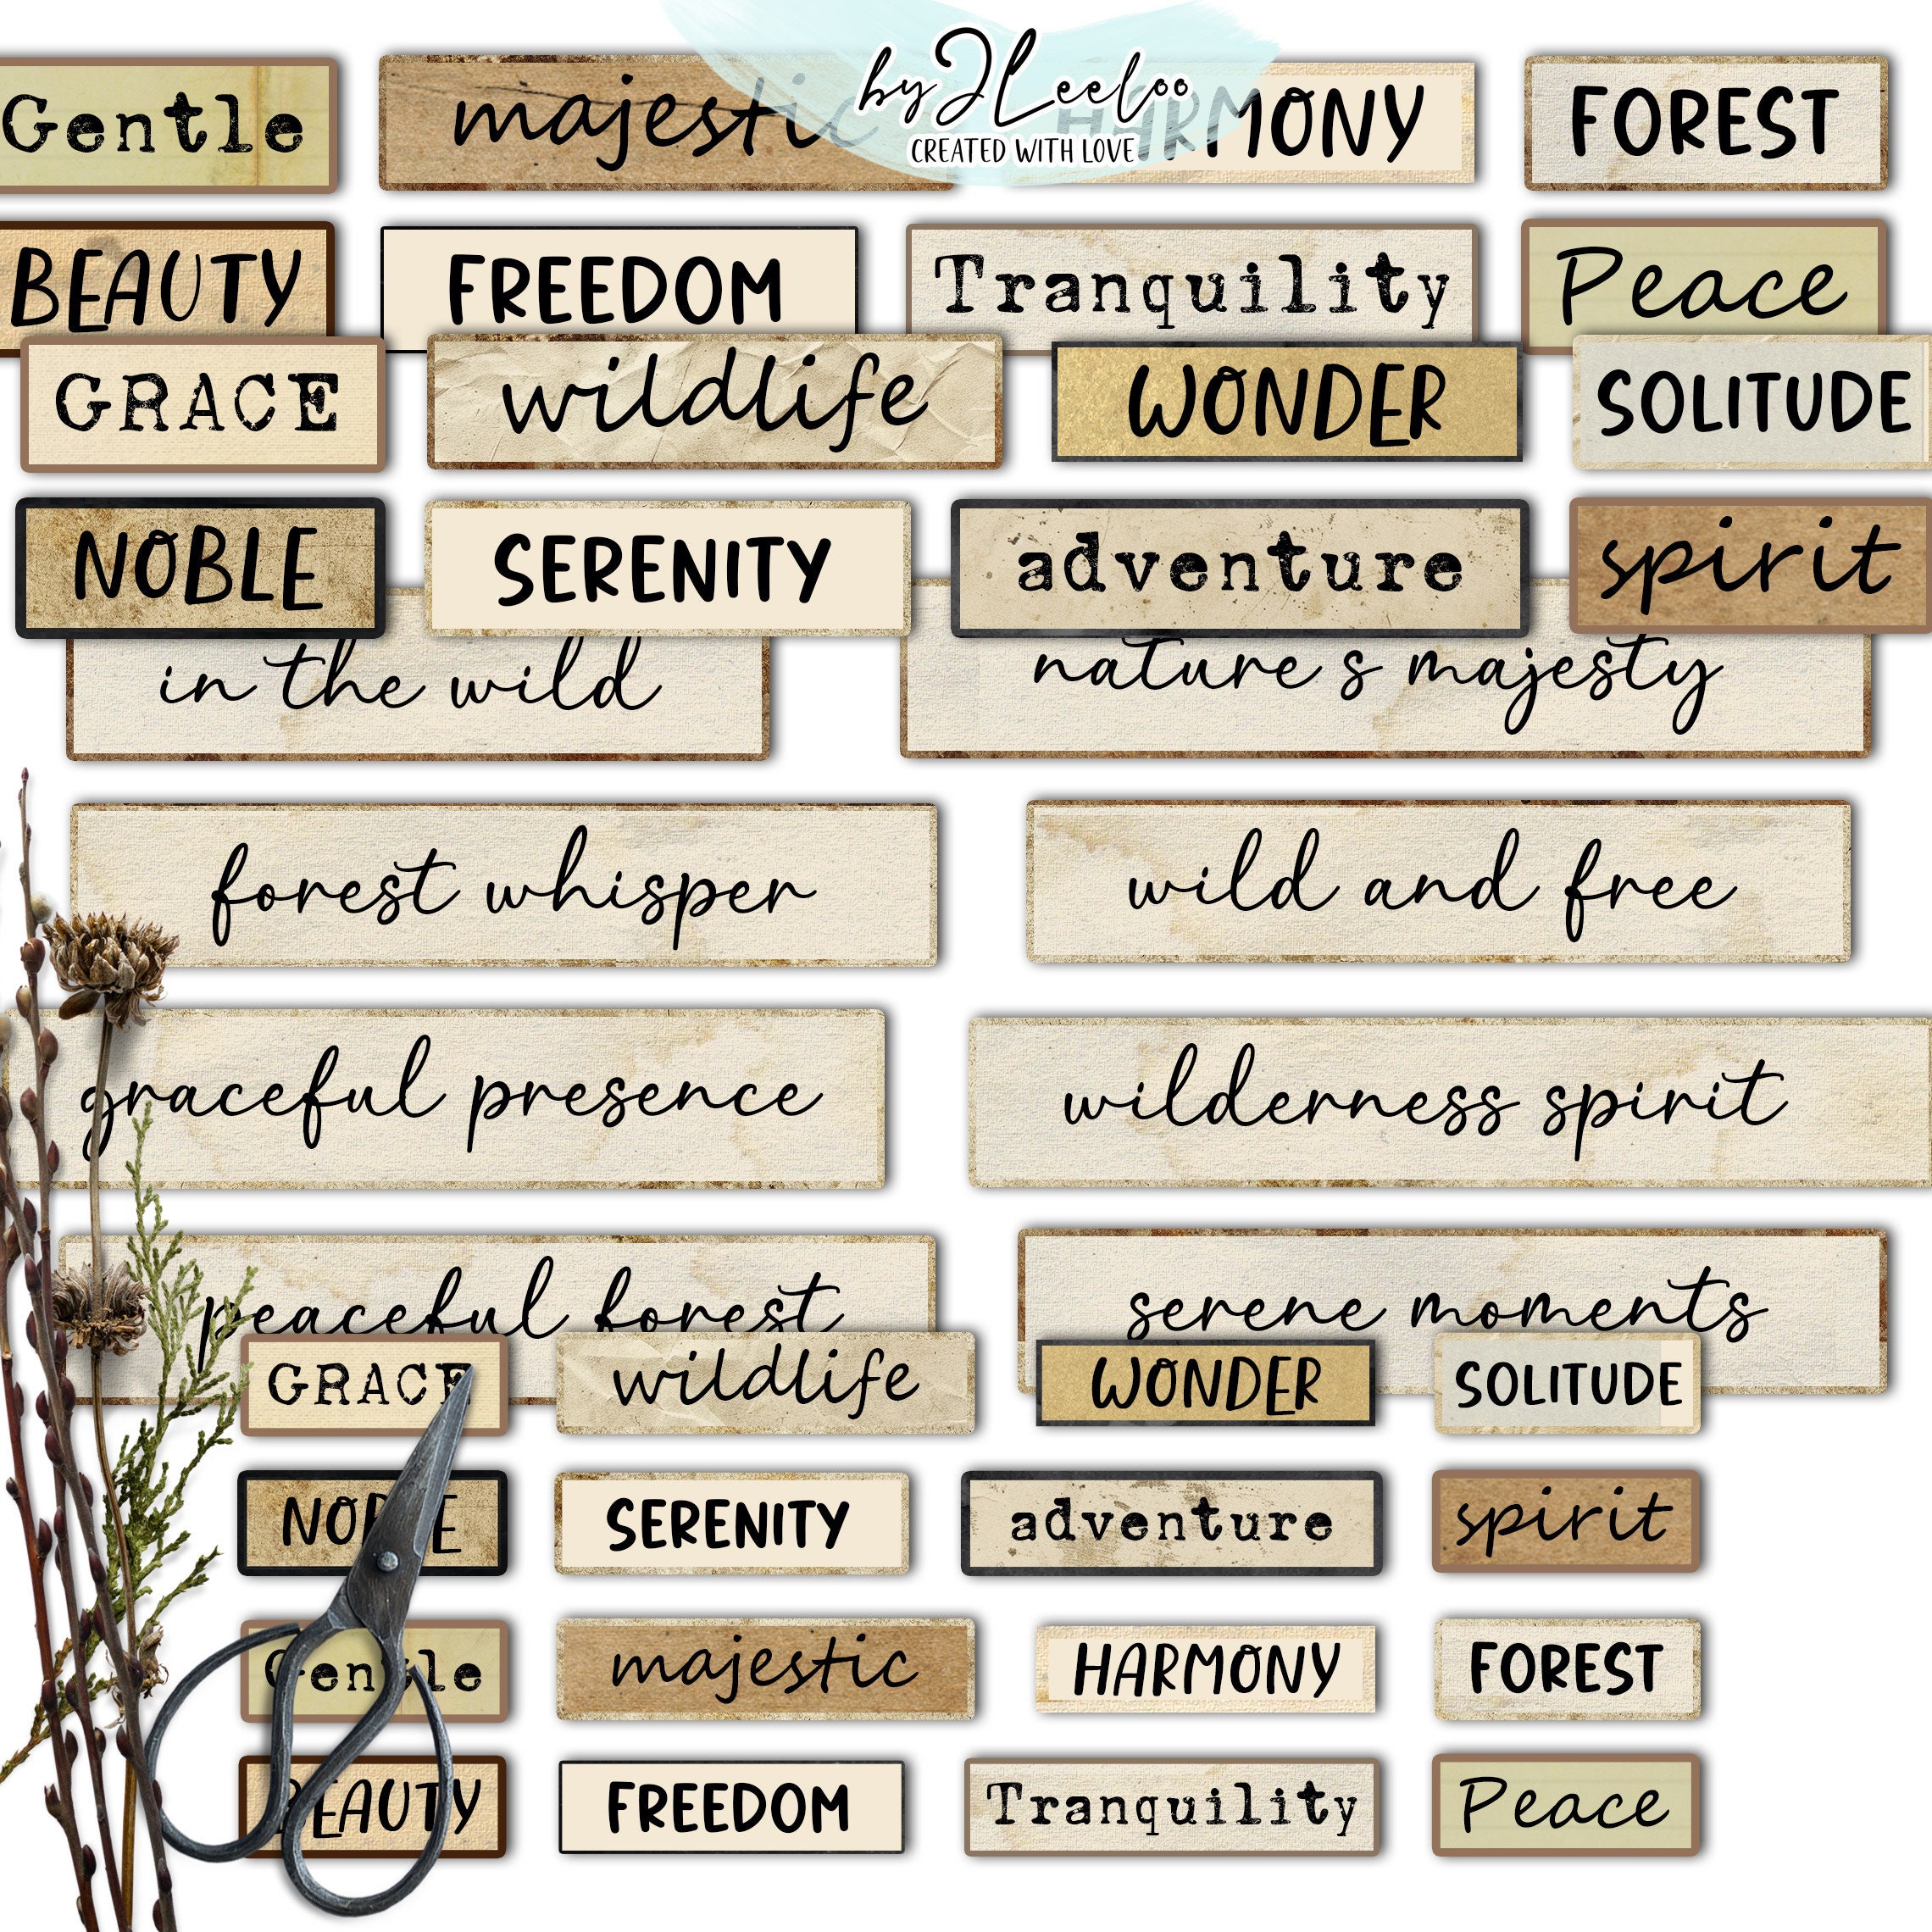 byJLeeloo
CREATED WITH LOVE
Gentle majestic HARMONY FOREST
BEAUTY FREEDOM Tranquility Peace
GRACE wildlife WONDER SOLITUDE
NOBLE SERENITY adventure spirit
in the wild nature s majesty
forest whisper wild and free
graceful presence wilderness spirit
peaceful forest serene moments
GRACE wildlife WONDER SOLITUDE
NOBLE SERENITY adventure spirit
Gentle majestic HARMONY FOREST
BEAUTY FREEDOM Tranquility Peace